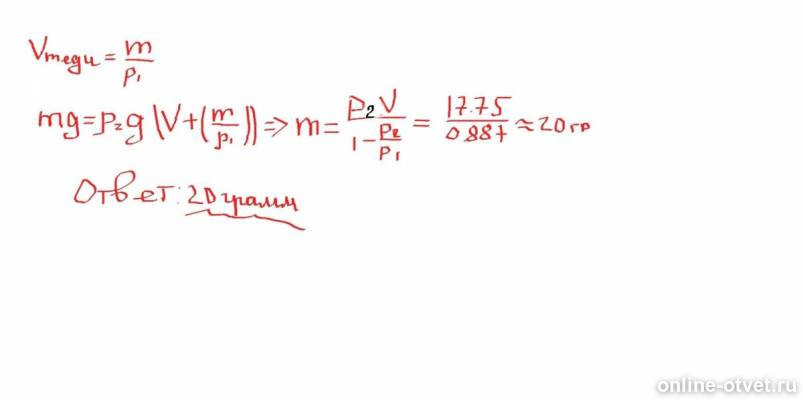 Vмеди = m/ρ₁
mg = ρ₂g(V+(m/ρ₁)) => m = ρ₂V/(1-ρ₂/ρ₁) = 17.75/0.887 ≈ 20 гр
Ответ: 20 грамм
online-otvet.ru